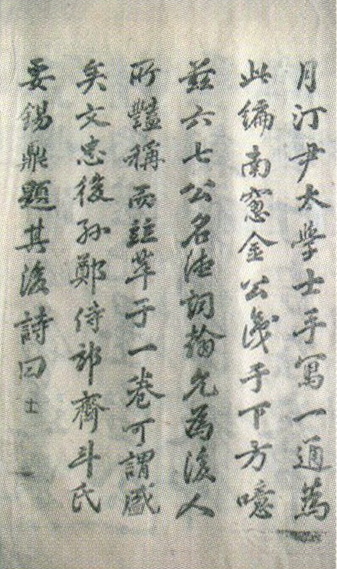 月汀尹太學士手寫一通爲
此編南窓金公識于下方噫
玆六七公名德詞翰允爲後人
所豔稱而竝萃于一卷可謂盛
矣文忠後孫鄭侍郞齊斗氏
要錫鼎題其後詩曰